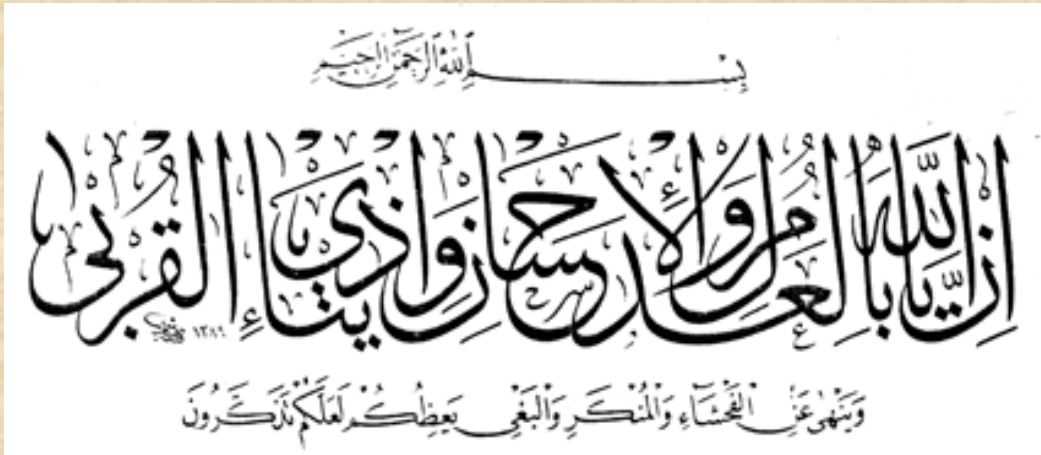 بِسْمِ اللهِ الرَّحْمٰنِ الرَّحِيْمِ
اِنَّ اللّٰهَ يَاْمُرُ بِالْعَدْلِ وَالْاِحْسَانِ وَاِيْتَاءِ ذِي الْقُرْبٰى
وَيَنْهٰى عَنِ الْفَحْشَاءِ وَالْمُنْكَرِ وَالْبَغْيِ يَعِظُكُمْ لَعَلَّكُمْ تَذَكَّرُونَ